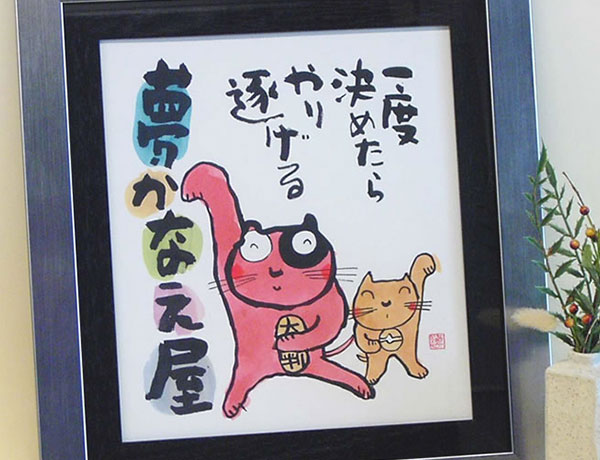 一度
決めたら
やり
逐げる
夢かなえ屋
大判